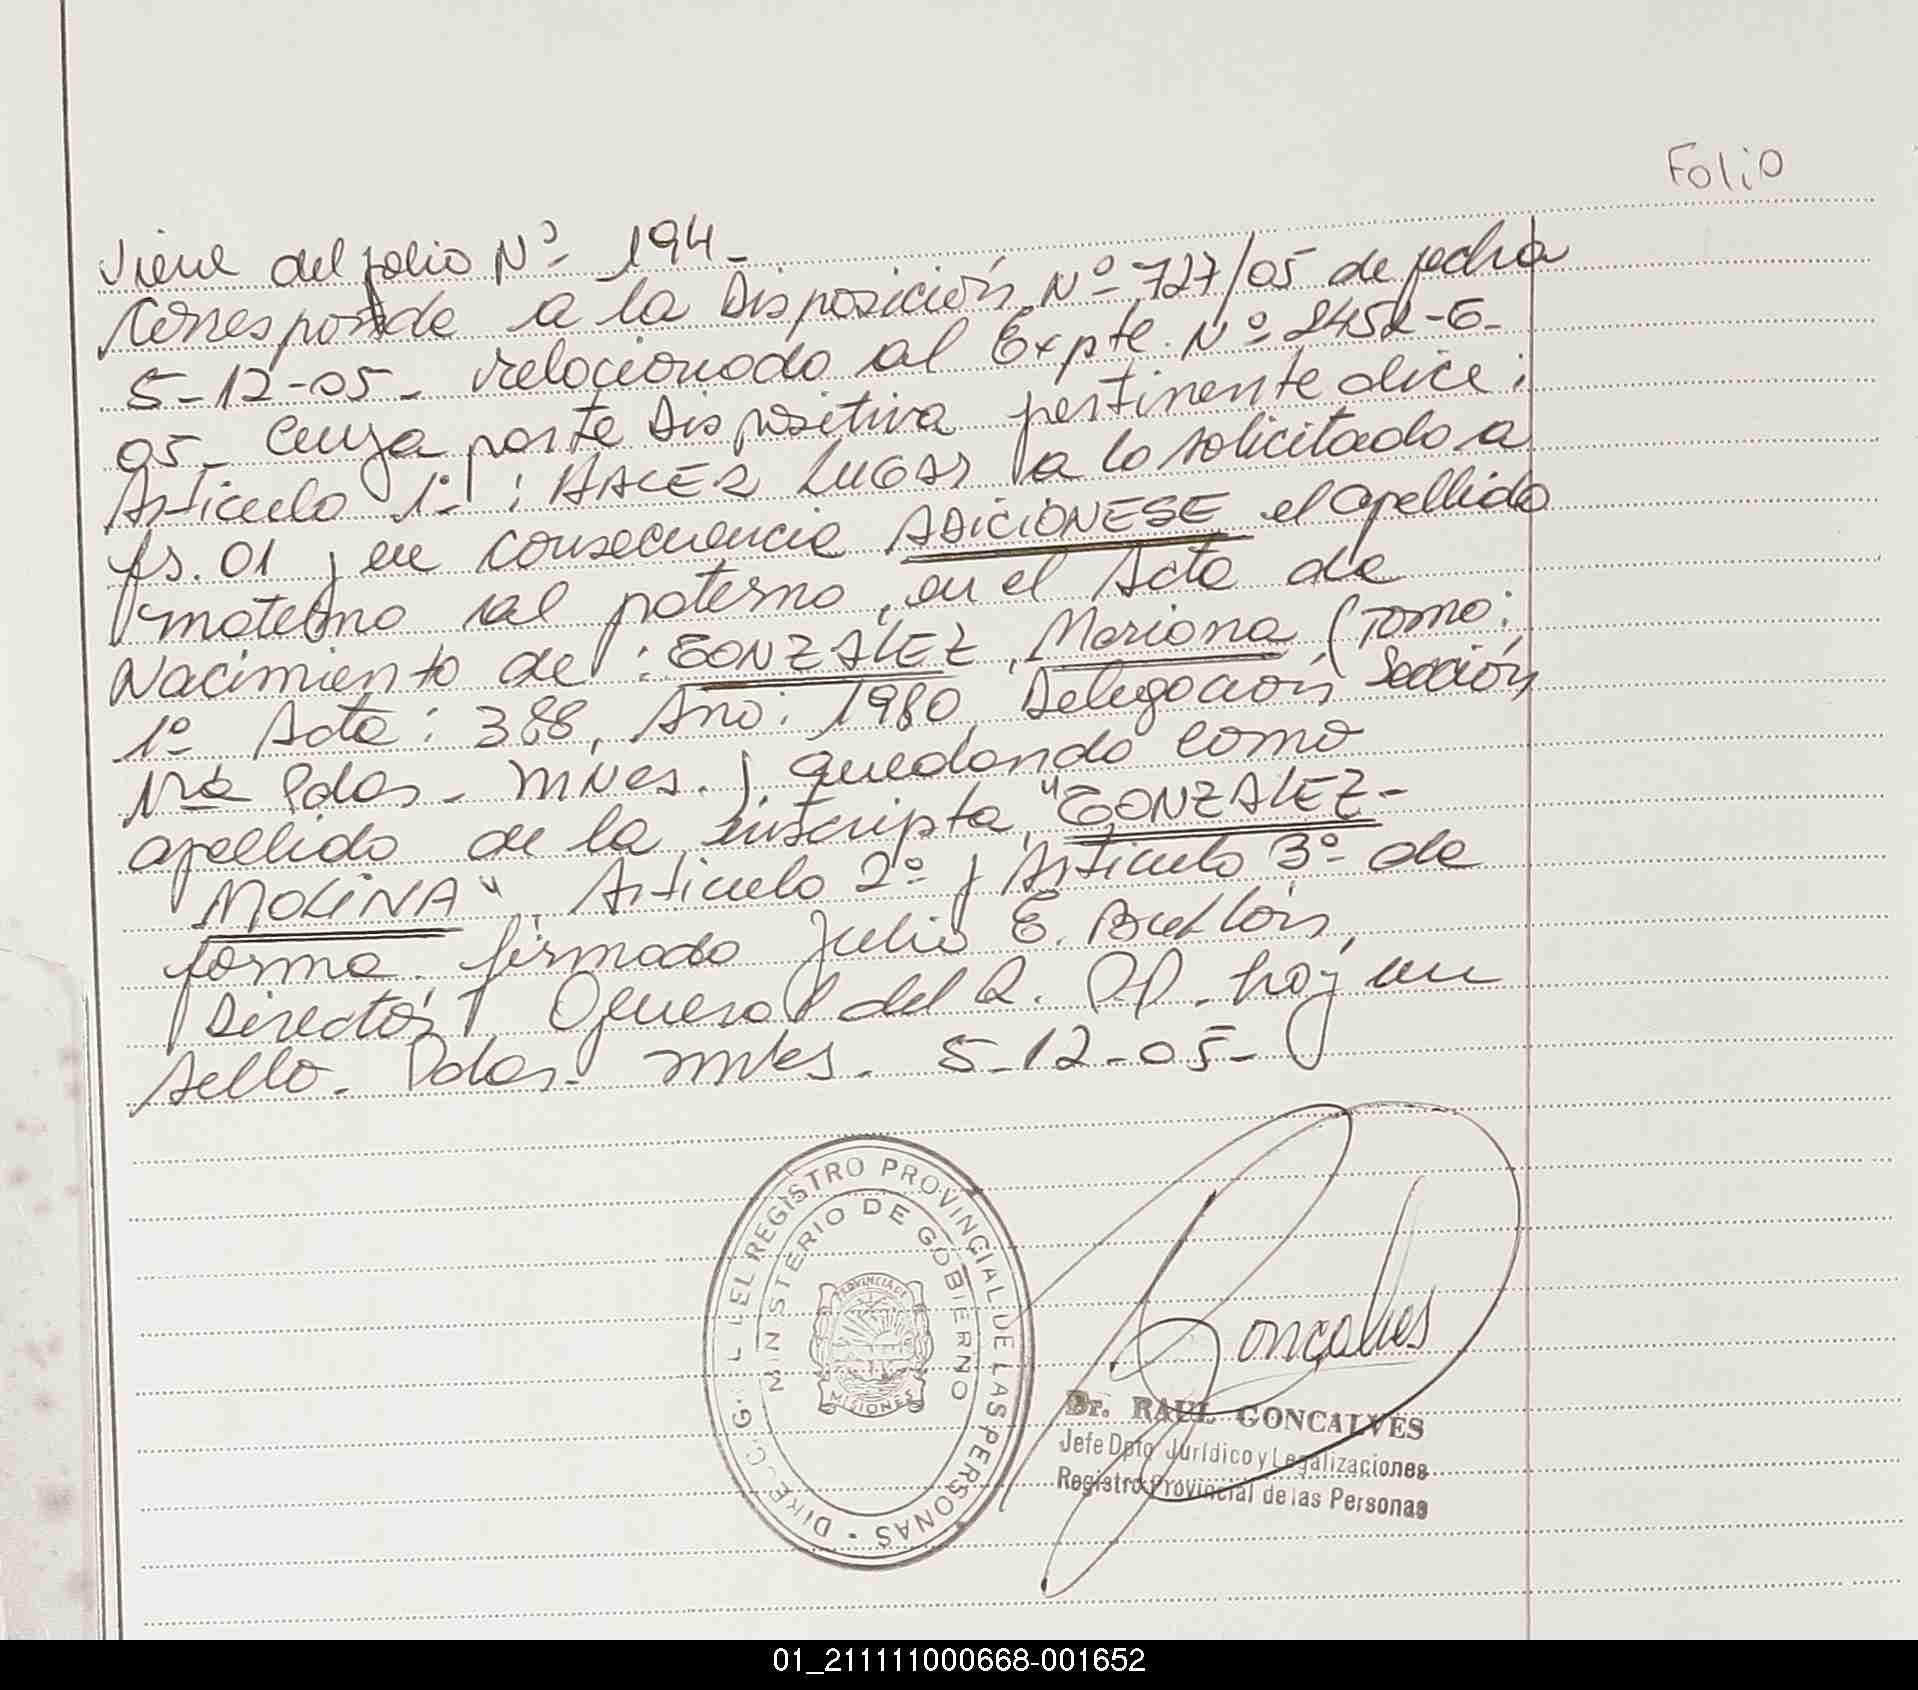 Folio
Viene del folio Nº 194-
Corresponde a la Disposición Nº 727/05 de fecha
5-12-05- relacionado al Expte. Nº 2452-G-
05- cuya parte Dispositiva pertinente dice:
Articulo 1º: HACER LUGAR a lo solicitado a
fs. 01 y en consecuencia ADICIONESE el apellido
materno al paterno, en el Acta de
Nacimiento de: GONZALEZ, Mariana (Tomo:
1º Acta: 388, Año: 1980, Delegación Sección
1ra Pdas- Mnes.), quedando como
apellido de la inscripta, "GONZALEZ-
MOLINA". Articulo 2º y Articulo 3º de
forma. firmado Julio E.
Director General del R. P.P. hay un
sello. Pdas- Mnes. 5-12-05-
DIRECC. G L DEL REGISTRO PROVINCIAL DE LAS PERSONAS
MINISTERIO DE GOBIERNO
PROVINCIA DE
MISIONES
Goncalves
Dr. RAUL GONCALVES
Jefe Dpto Jurídico y Legalizaciones
Registro Provincial de las Personas
01_211111000668-001652